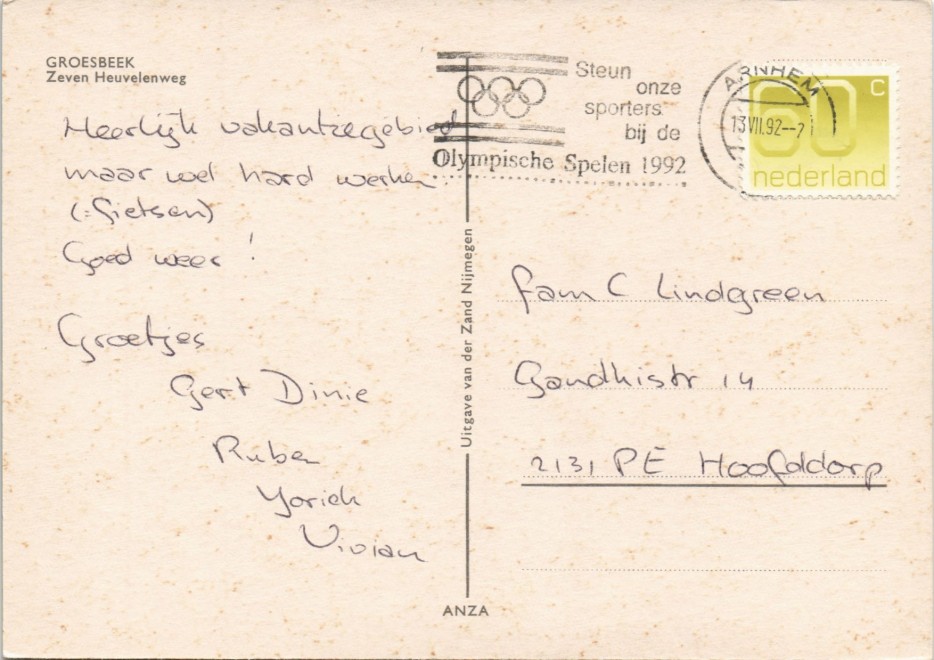 GROESBEEK
Zeven Heuvelenweg
Heerlijk vakantiegebied
maar wel hard werken
(: fietsen)
Goed weer !
Groetjes
Gert Dinie
Ruben
Yorick
Vivian
Uitgave van der Zand Nijmegen
ANZA
Steun
onze
sporters
bij de
Olympische Spelen 1992
ARNHEM
13 VII.92--
60 c
nederland
fam C Lindgreen
Gandhistr 14
2131 PE Hoofddorp